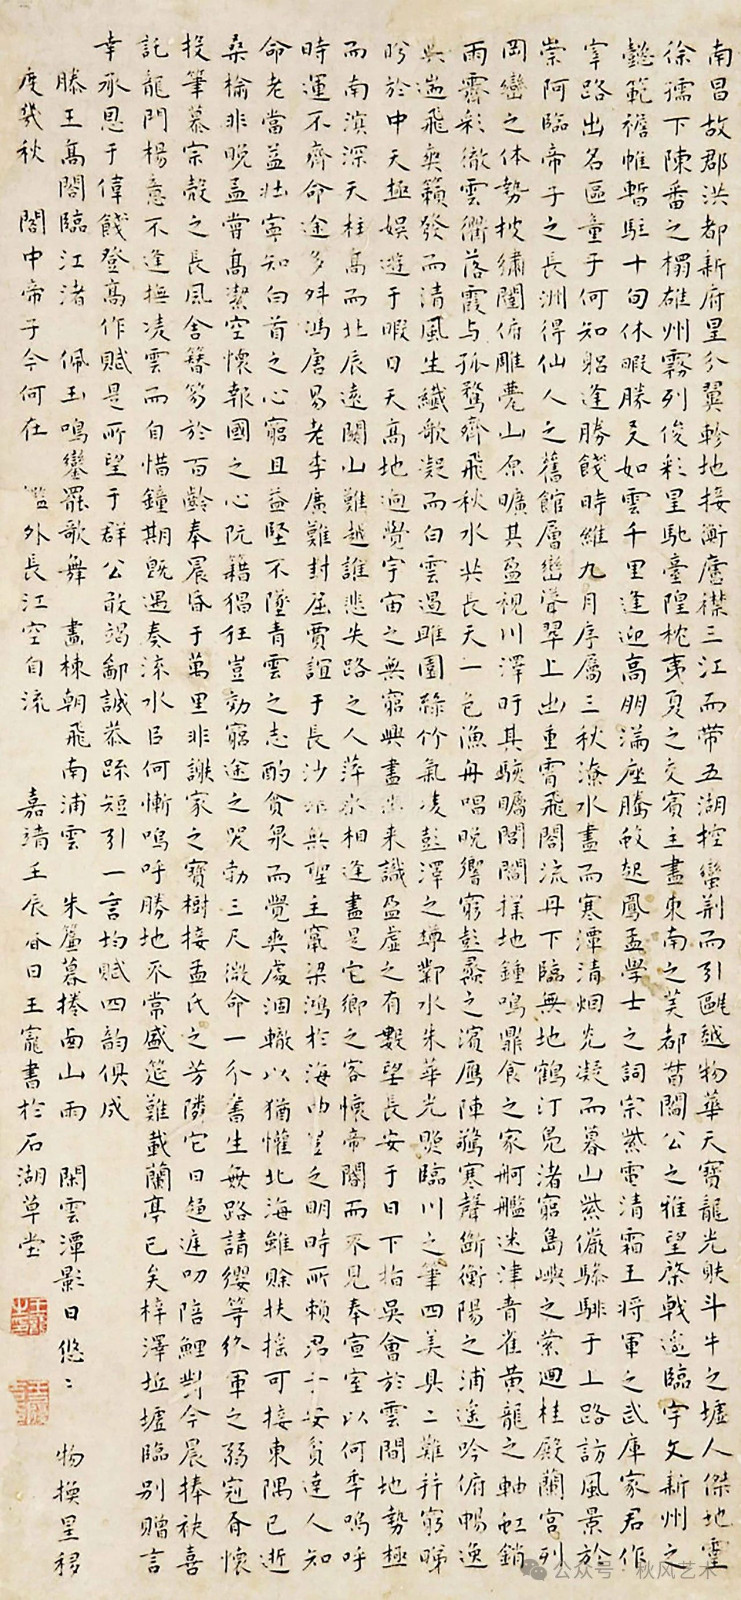 南昌故郡洪都新府星分翼軫地接衡廬襟三江而帶五湖控蠻荊而引甌越物華天寶龍光射斗牛之墟人傑地靈
徐孺下陳蕃之榻雄州霧列俊彩星馳臺隍枕夷夏之交賓主盡東南之美都督閻公之雅望棨戟遙臨宇文新州之
懿範襜帷暫駐十旬休暇勝友如雲千里逢迎高朋滿座騰蛟起鳳孟學士之詞宗紫電清霜王將軍之武庫家君作
宰路出名區童子何知躬逢勝餞時維九月序屬三秋潦水盡而寒潭清烟光凝而暮山紫儼驂騑于上路訪風景於
崇阿臨帝子之長洲得仙人之舊館層巒聳翠上出重霄飛閣流丹下臨無地鶴汀鳧渚窮島嶼之縈迴桂殿蘭宮列
岡巒之体勢披繡闥俯雕甍山原曠其盈視川澤盱其駭矚閭閻撲地鍾鳴鼎食之家舸艦迷津青雀黃龍之軸虹銷
雨霽彩徹雲衢落霞与孤鶩齊飛秋水共長天一色漁舟唱晚響窮彭蠡之濱雁陣驚寒聲斷衡陽之浦遙吟俯暢逸
興遄飛爽籟發而清風生纖歌凝而白雲遏睢園綠竹氣凌彭澤之樽鄴水朱華光照臨川之筆四美具二難并窮睇
眄於中天極娛遊于暇日天高地迥覺宇宙之無窮興盡悲來識盈虛之有數望長安于日下指吳會於雲間地勢極
而南溟深天柱高而北辰遠關山難越誰悲失路之人萍水相逢盡是它鄉之客懷帝閽而不見奉宣室以何年嗚呼
時運不齊命途多舛馮唐易老李廣難封屈賈誼于長沙非無聖主竄梁鴻於海曲豈乏明時所賴君子安貧達人知
命老當益壯寧知白首之心窮且益堅不墜青雲之志酌貪泉而覺爽處涸轍以猶懽北海雖賒扶搖可接東隅已逝
桑榆非晚孟嘗高潔空懷報國之心阮籍猖狂豈効窮途之哭勃三尺微命一介書生無路請纓等終軍之弱冠有懷
投筆慕宗愨之長風舍簪笏於百齡奉晨昏于萬里非謝家之寶樹接孟氏之芳隣它日趨庭叨陪鯉對今晨捧袂喜
託龍門楊意不逢撫凌雲而自惜鐘期既遇奏流水以何慚嗚呼勝地不常盛筵難載蘭亭已矣梓澤坵墟臨別贈言
幸承恩于偉餞登高作賦是所望于群公敢竭鄙誠恭疏短引一言均賦四韵俱成
滕王高閣臨江渚 佩玉鳴鑾罷歌舞 畫棟朝飛南浦雲 朱簾暮捲西山雨 閑雲潭影日悠〻 物換星移
度幾秋 閣中帝子今何在 檻外長江空自流 嘉靖壬辰春日王寵書於石湖草堂
公众号·秋风艺术